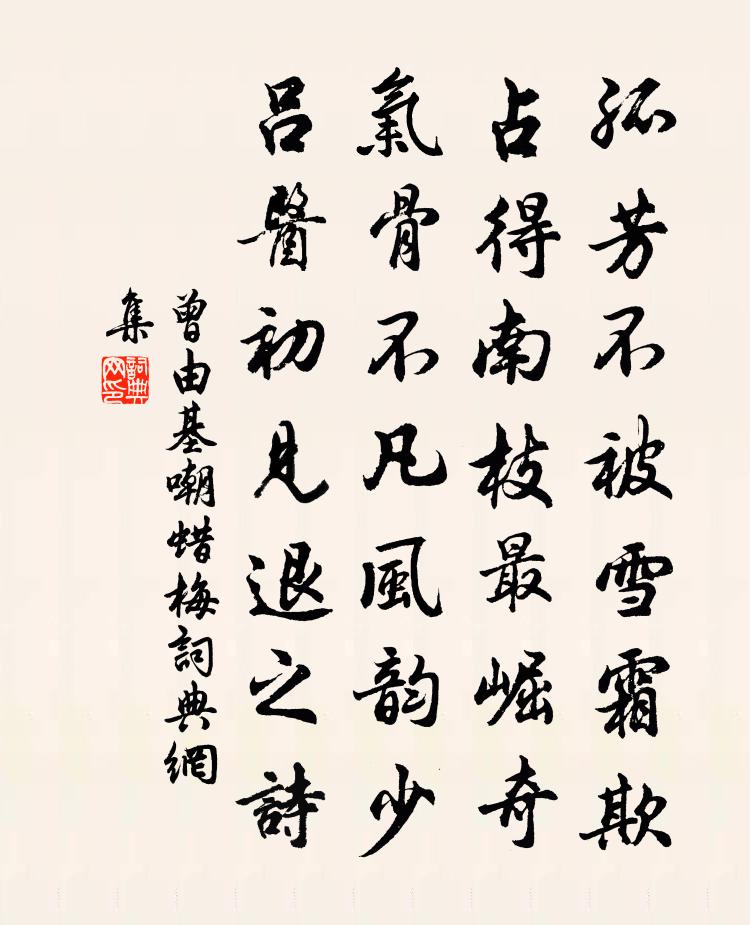 孤芳不被雪霜欺
占得南枝最崛奇
氣骨不凡風韵少
呂醫初見退之詩
曾由基嘲蜡梅詞典網
集
詞典
网印